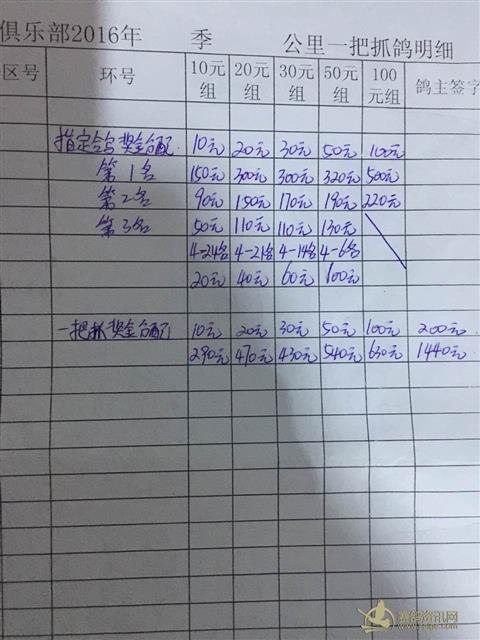 俱乐部2016年 季 公里一把抓鸽明细
区号 环号 10元组 20元组 30元组 50元组 100元组 鸽主签字
指定鸽奖金分配 10元 20元 30元 50元 100元
第1名 150元 300元 300元 320元 500元
第2名 90元 150元 170元 190元 220元
第3名 50元 110元 110元 130元
4-24名 4-21名 4-14名 4-6名
20元 40元 60元 100元
一把抓奖金分配 10元 20元 30元 50元 100元 200元
290元 470元 430元 540元 630元 1440元
赛鸽资讯网